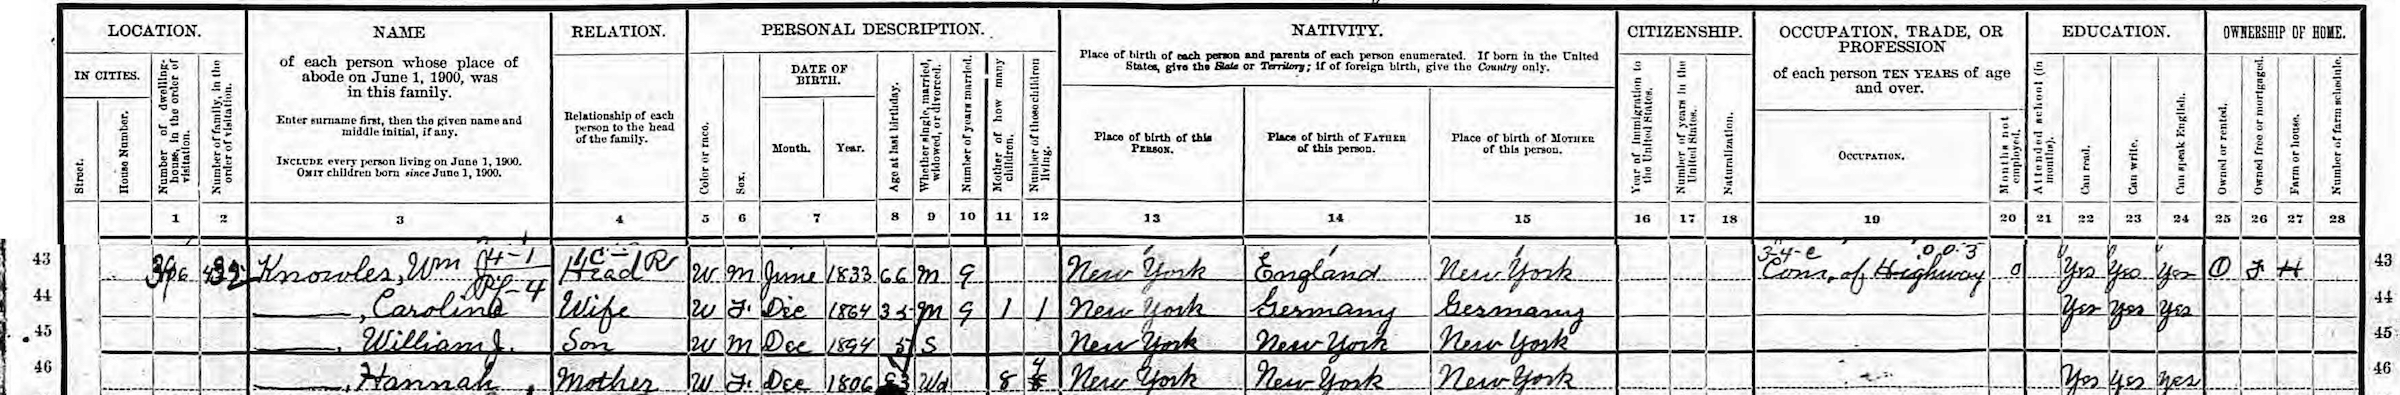 LOCATION. NAME RELATION. PERSONAL DESCRIPTION. NATIVITY. CITIZENSHIP. OCCUPATION, TRADE, OR PROFESSION EDUCATION. OWNERSHIP OF HOME.
IN CITIES.
Street.
House Number.
Number of dwelling-house, in the order of visitation.
Number of family, in the order of visitation.
of each person whose place of abode on June 1, 1900, was in this family.
Enter surname first, then the given name and middle initial, if any.
INCLUDE every person living on June 1, 1900.
OMIT children born since June 1, 1900.
Relationship of each person to the head of the family.
Color or race.
Sex.
DATE OF BIRTH.
Month. Year.
Age at last birthday.
Whether single, married, widowed, or divorced.
Number of years married.
Mother of how many children.
Number of those children living.
Place of birth of each person and parents of each person enumerated. If born in the United States, give the State or Territory; if of foreign birth, give the Country only.
Place of birth of this PERSON.
Place of birth of FATHER of this person.
Place of birth of MOTHER of this person.
Year of immigration to the United States.
Number of years in the United States.
Naturalization.
of each person TEN YEARS of age and over.
OCCUPATION.
Months not employed.
Attended school (in months).
Can read.
Can write.
Can speak English.
Owned or rented.
Owned free or mortgaged.
Farm or house.
Number of farm schedule.
1 2 3 4 5 6 7 8 9 10 11 12 13 14 15 16 17 18 19 20 21 22 23 24 25 26 27 28
43 Knowles, Wm Head W M June 1833 66 M 9 New York England New York Com. of Highway 0 Yes Yes Yes O F H 43
44 ——, Caroline Wife W F. Dec 1864 35 M 9 1 1 New York Germany Germany Yes Yes Yes 44
45 ——, William J. Son W M Dec 1894 5 S New York New York New York 45
46 ——, Hannah Mother W F. Dec 1806 Wd 8 4 New York New York New York Yes Yes Yes 46